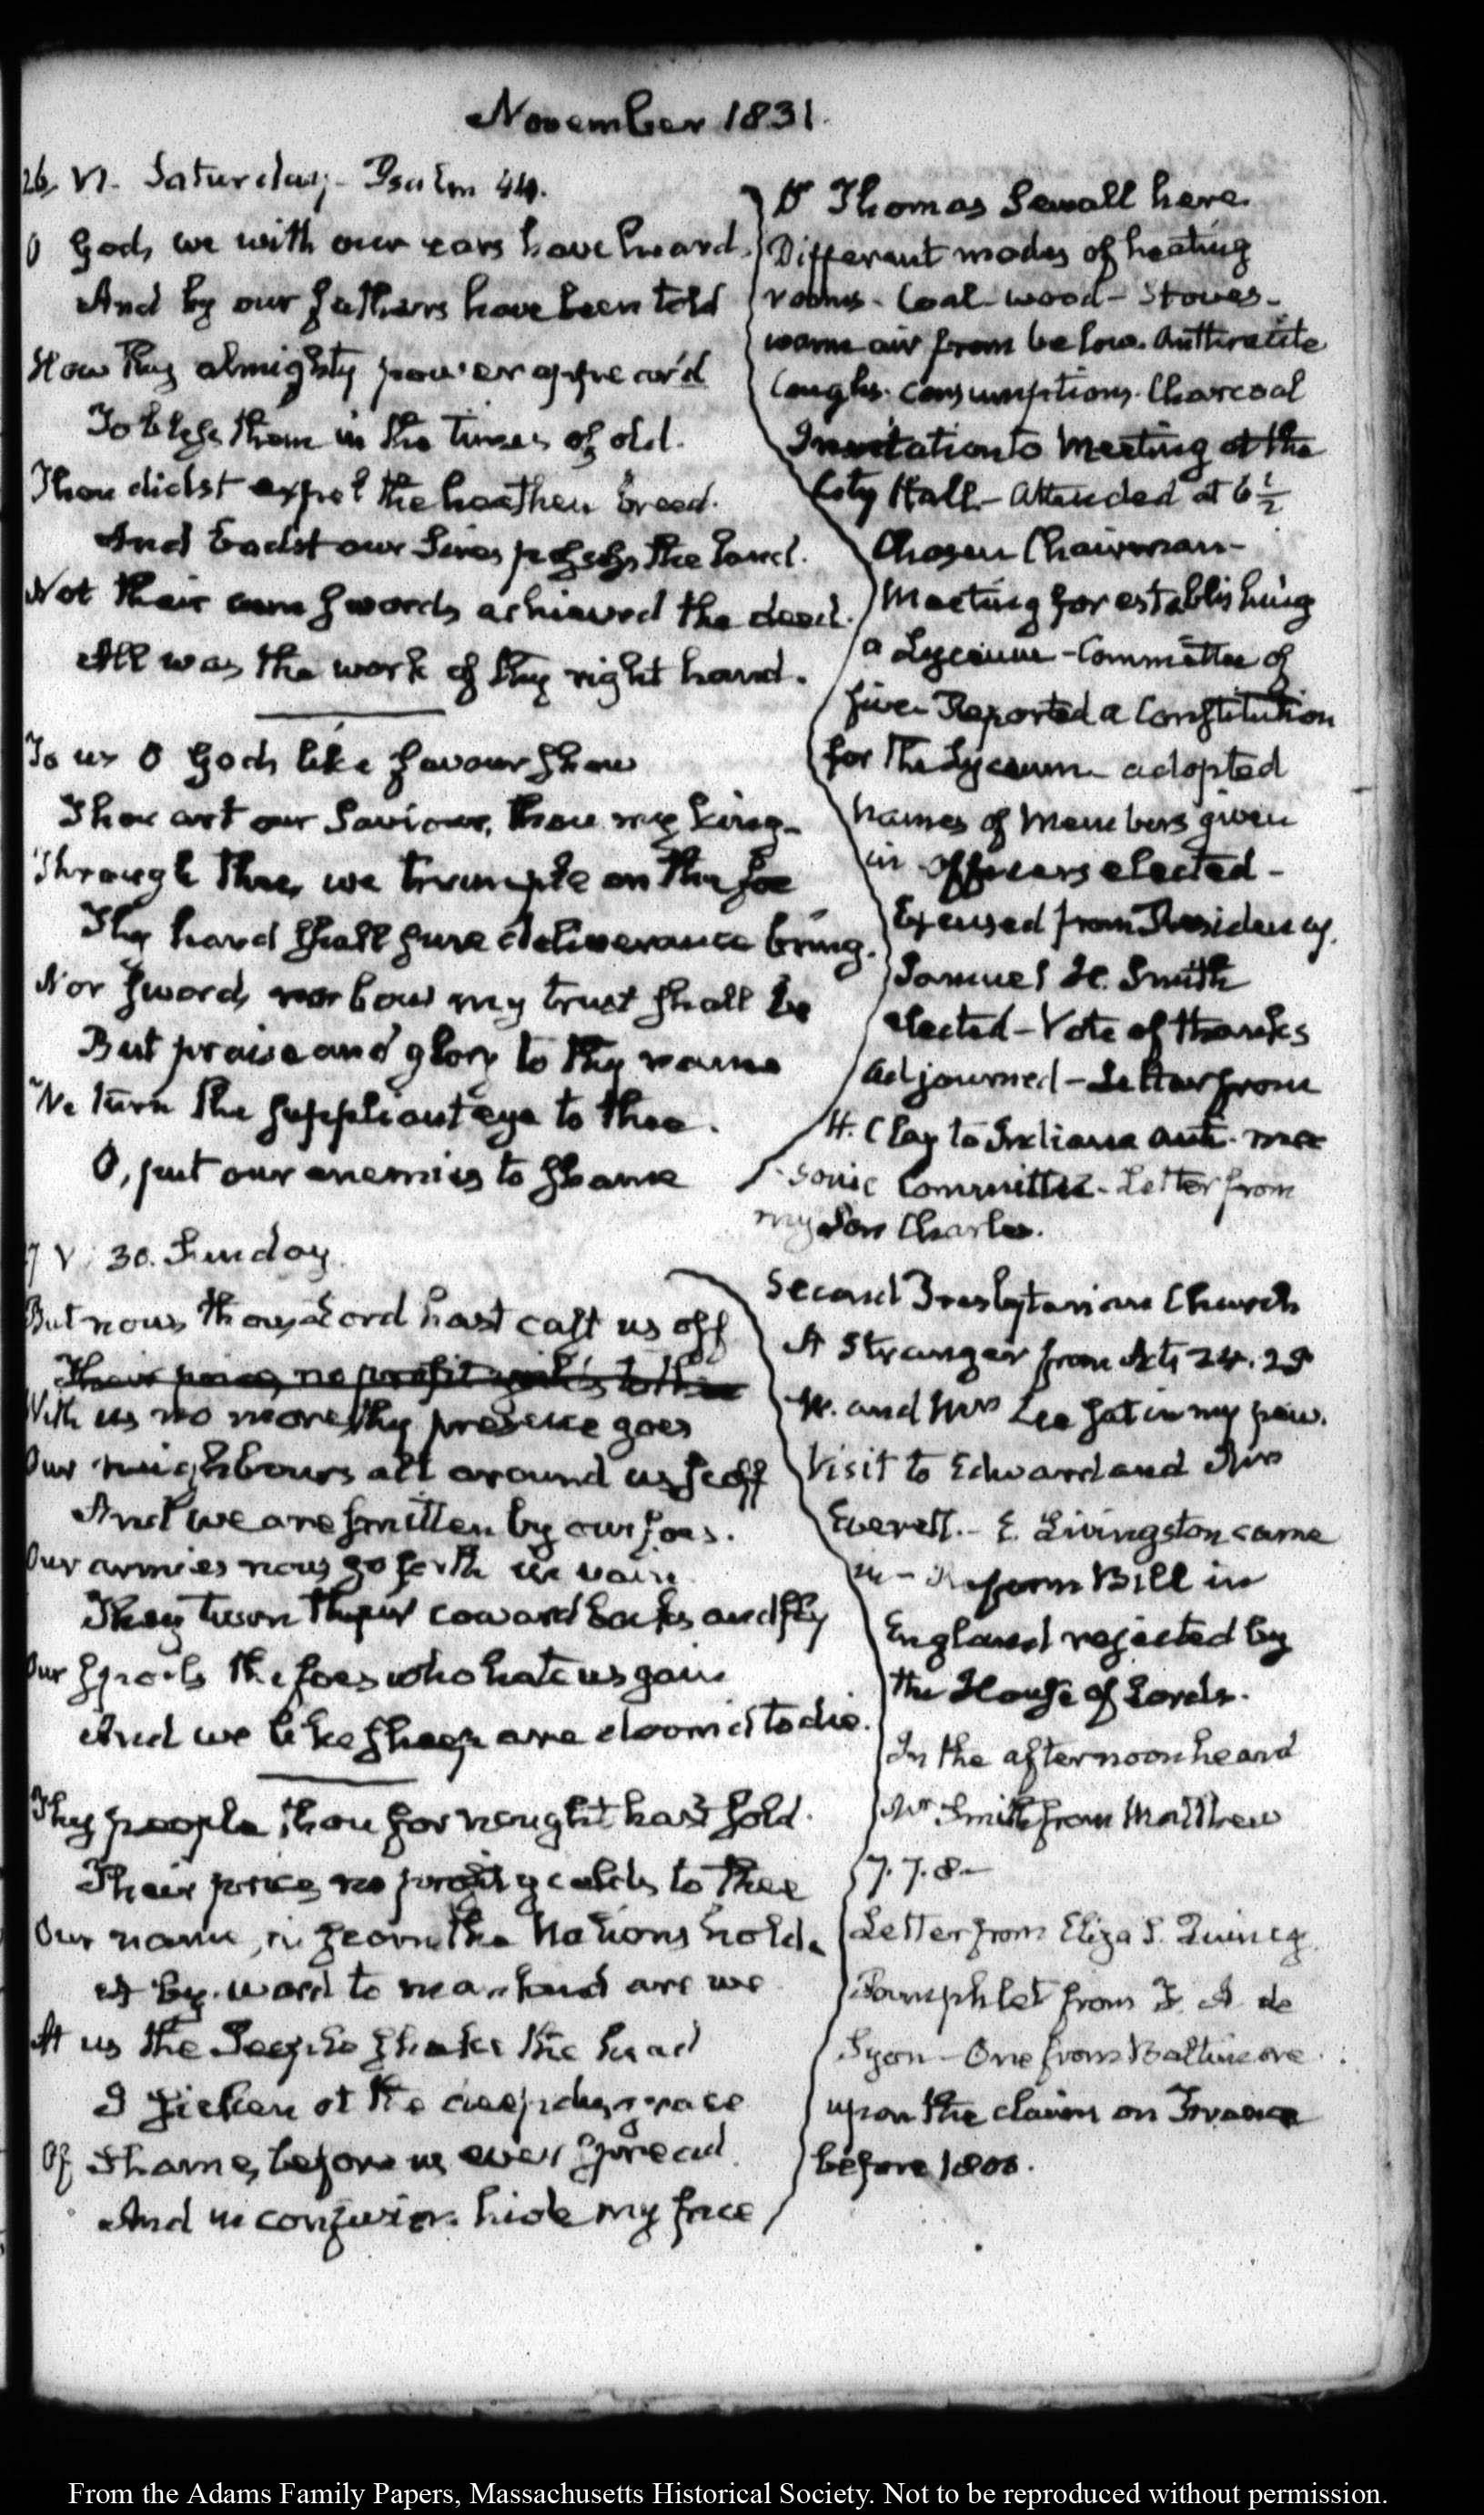 November 1831.
26. VI. Saturday. Psalm 44.
O God, we with our ears have heard.
And by our fathers have been told
How thy almighty power appear'd
To bless them in the times of old.
Thou didst expel the heathen breed.
And badst our Sires possess the land.
Not their own swords achieved the deed.
All was the work of thy right hand.
To us O God, like favour show
Thou art our Saviour, thou my king.
Through thee, we trample on the foe
Thy hand shall sure deliverance bring.
Nor sword, nor bow my trust shall be
But praise and glory to thy name
We turn the suppliant eye to thee.
O, put our enemies to shame
Dr Thomas Sewall here.
Different modes of heating
rooms - Coal - wood - Stoves -
warm air from below. Anthracite
Coughs. Consumptions. Charcoal
Invitation to Meeting at the
City Hall - Attended at 6 1/2
Chosen Chairman -
Meeting for establishing
a Lyceum - Committee of
five - Reported a Constitution
for the Lyceum - adopted
Names of Members given
in officers elected -
Excused from Presidency.
Samuel H. Smith
elected - Vote of thanks
Adjourned - Letter from
H. Clay to Indiana Anti-ma
-sonic Committee - Letter from
my Son Charles.
27 V. 30. Sunday.
But now thou, Lord hast cast us off
Their price, no profit yields to thee
With us no more, thy presence goes
Our neighbours all around us scoff
And we are smitten by our foes.
Our armies now go forth in vain
They turn their coward backs and fly
Our spoils the foes who hate us gain
And we like sheep are doom'd to die.
Thy people, thou for nought hast sold.
Their price, no profit yields to thee
Our name, in scorn the Nations hold.
A by-word to mankind are we
At us the People shake the head
I sicken at the deep disgrace
Of Shame, before us ever spread
And in confusion hide my face
Second Presbyterian Church
A Stranger from Acts 24. 25
Mr. and Mrs Lee sat in my pew.
Visit to Edward and Mrs
Everett. - E. Livingston came
in - Reform Bill in
England rejected by
the House of Lords.
In the afternoon heard
Mr Smith from Matthew
7. 7. 8 -
Letter from Eliza S. Quincy.
Pamphlet from de
Lyon - One from Baltimore
upon the claims on France
before 1800.
From the Adams Family Papers, Massachusetts Historical Society. Not to be reproduced without permission.